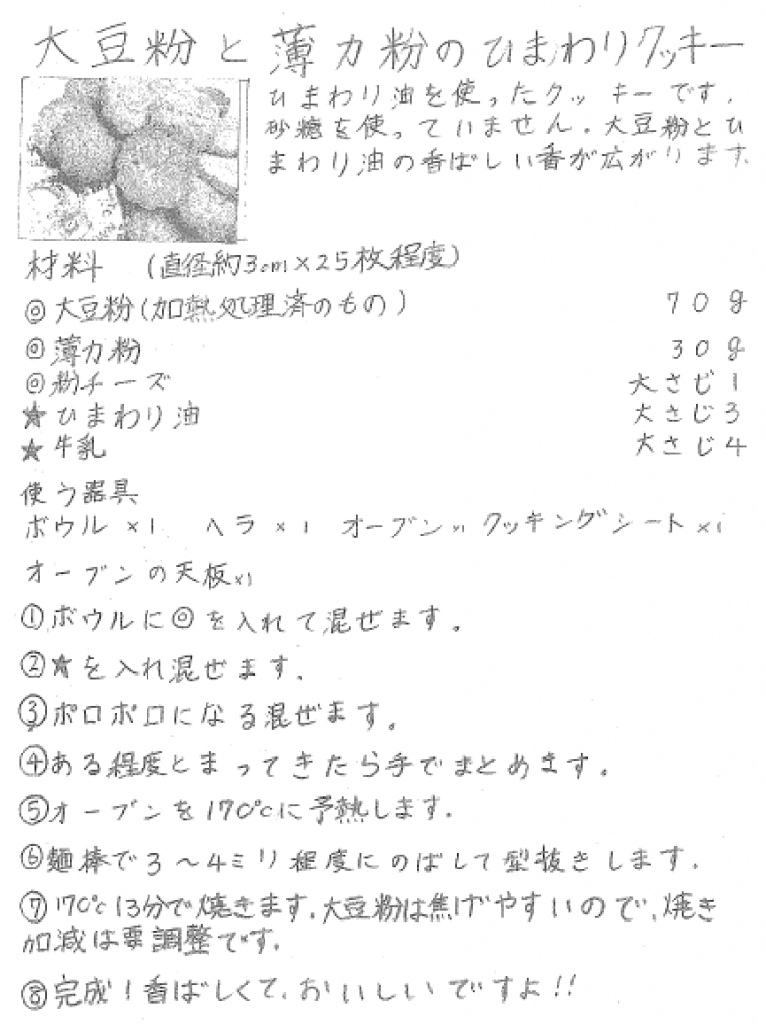 大豆粉と薄力粉のひまわりクッキー
ひまわり油を使ったクッキーです。
砂糖を使っていません。大豆粉とひ
まわり油の香ばしい香が広がります。
材料 (直径約3cm×25枚程度)
◎大豆粉(加熱処理済のもの) 70g
◎薄力粉 30g
◎粉チーズ 大さじ1
★ひまわり油 大さじ3
★牛乳 大さじ4
使う器具
ボウル×1 ヘラ×1 オーブン×1 クッキングシート×1
オーブンの天板×1
①ボウルに◎を入れて混ぜます。
②★を入れ混ぜます。
③ポロポロになる混ぜます。
④ある程度とまってきたら手でまとめます。
⑤オーブンを170℃に予熱します。
⑥麺棒で3〜4ミリ程度にのばして型抜きします。
⑦170℃13分で焼きます。大豆粉は焦げやすいので、焼き
加減は要調整です。
⑧完成!香ばしくて、おいしいですよ!!